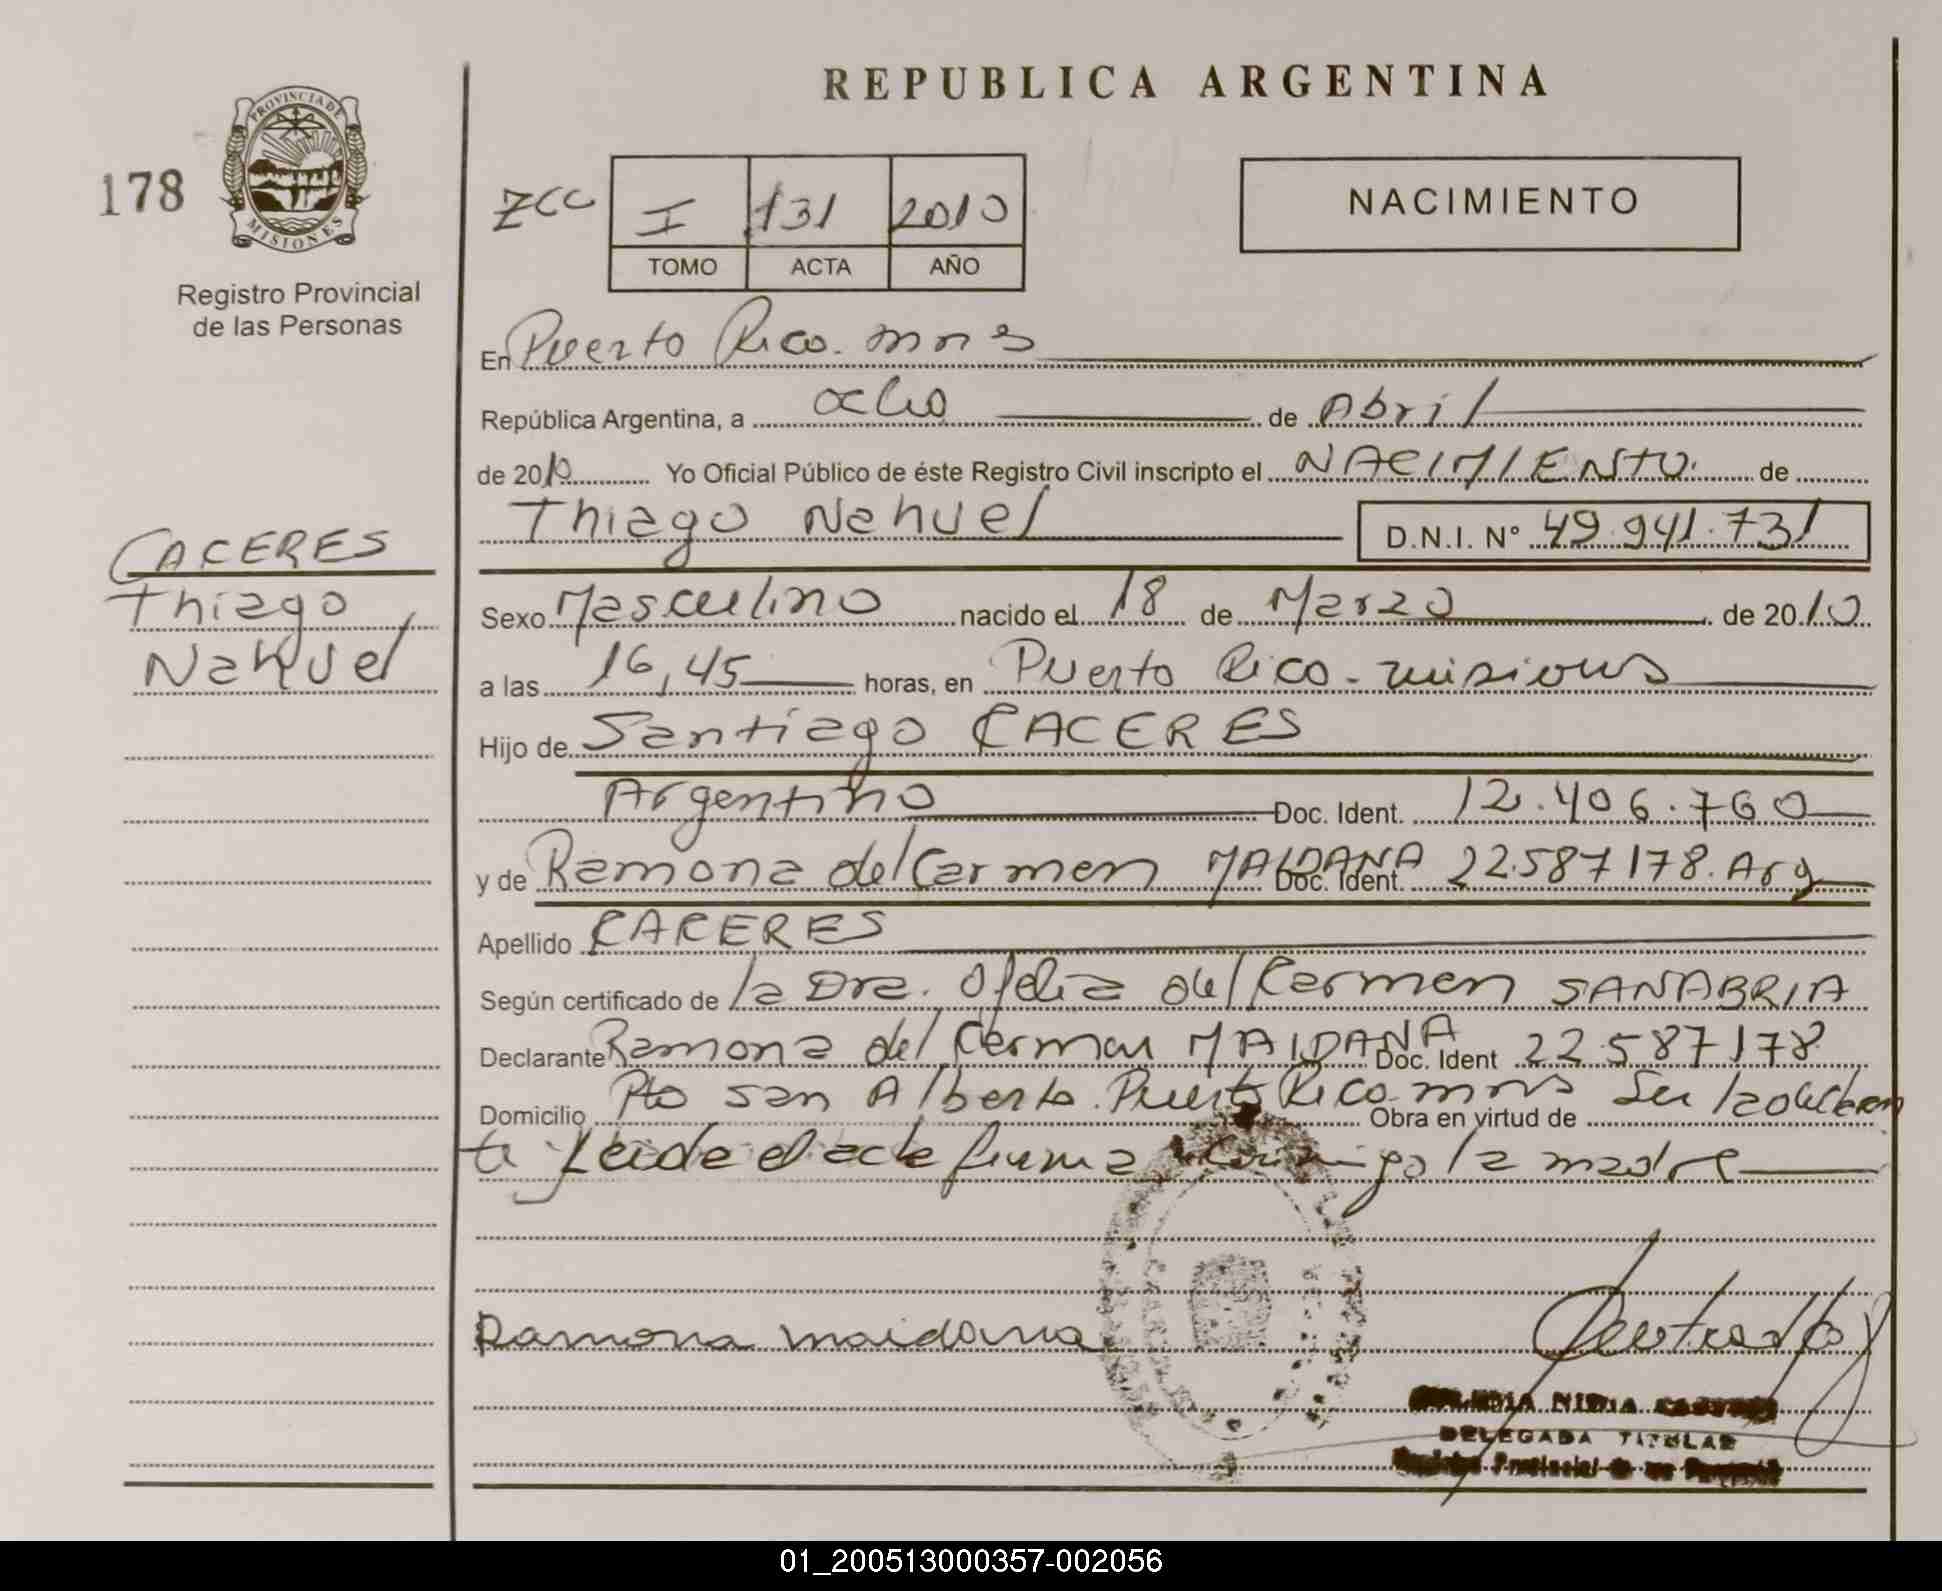 REPUBLICA ARGENTINA
PROVINCIA DE
MISIONES
178
Registro Provincial
de las Personas
ZCC I 131 2010
TOMO ACTA AÑO
NACIMIENTO
En Puerto Rico. mnes
República Argentina, a ocho de Abril
de 2010 Yo Oficial Público de éste Registro Civil inscripto el NACIMIENTO. de
Thiago Nahuel D.N.I. Nº 49.941.731
CACERES
Thiago
Nahuel
Sexo Masculino nacido el 18 de Marzo de 2010
a las 16,45 horas, en Puerto Rico - misiones
Hijo de Santiago CACERES
Argentino Doc. Ident. 12.406.760
y de Ramona del Carmen MAIDANA Doc. Ident. 22.587178. Arg
Apellido CACERES
Según certificado de la Dra. Ofelia del Carmen SANABRIA
Declarante Ramona del Carmen MAIDANA Doc. Ident 22587178
Domicilio Pto san Alberto. Puerto Rico mns Obra en virtud de Ser
Leida el acta firma conmigo la madre
Ramona maidana
NIDIA
DELEGADA TITULAR
Registro Provincial de las Personas
01_200513000357-002056